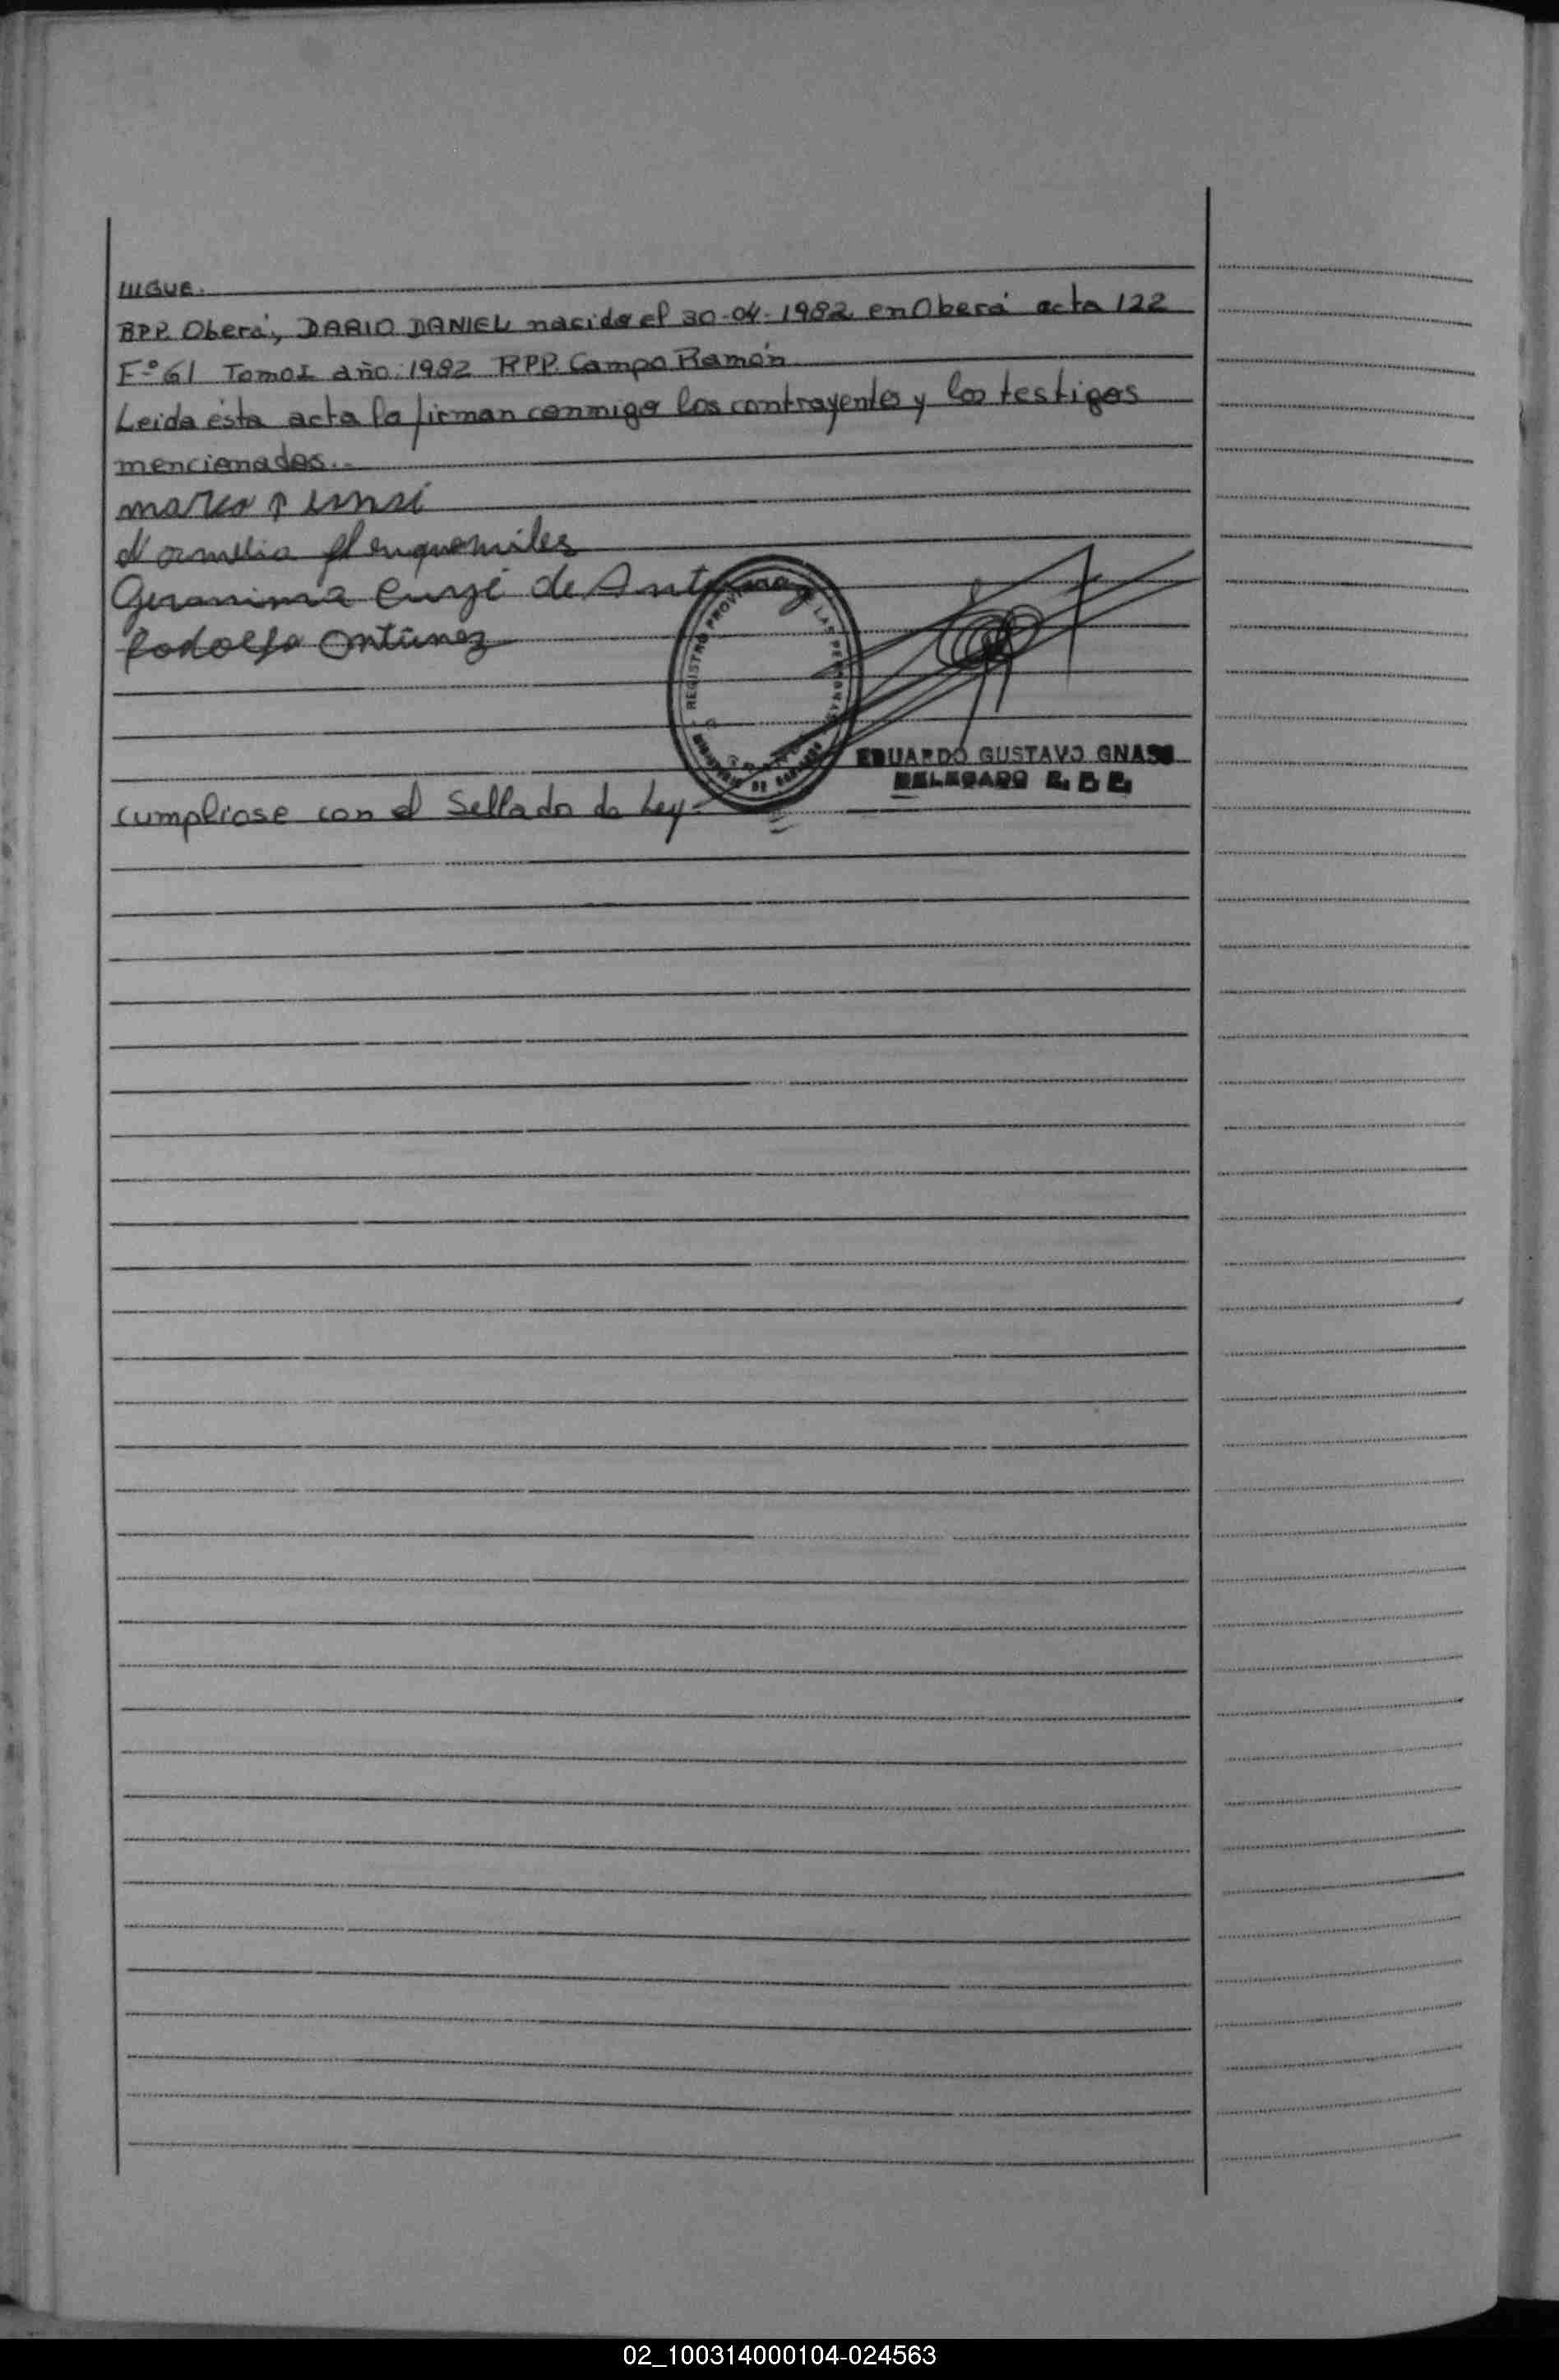 IIIGUE.
RPP. Oberá, DARIO DANIEL nacido el 30-04-1982 en Oberá acta 122
Fº 61 Tomo I año: 1982 RPP. Campo Ramón
Leida ésta acta la firman conmigo los contrayentes y los testigos
mencionados..
marco
Geronima de
Rodolfo Antunez
REGISTRO PROVINCIAL DE LAS PERSONAS
EDUARDO GUSTAVO GNASS
DELEGADO
cumpliose con el Sellado de Ley-
02_100314000104-024563